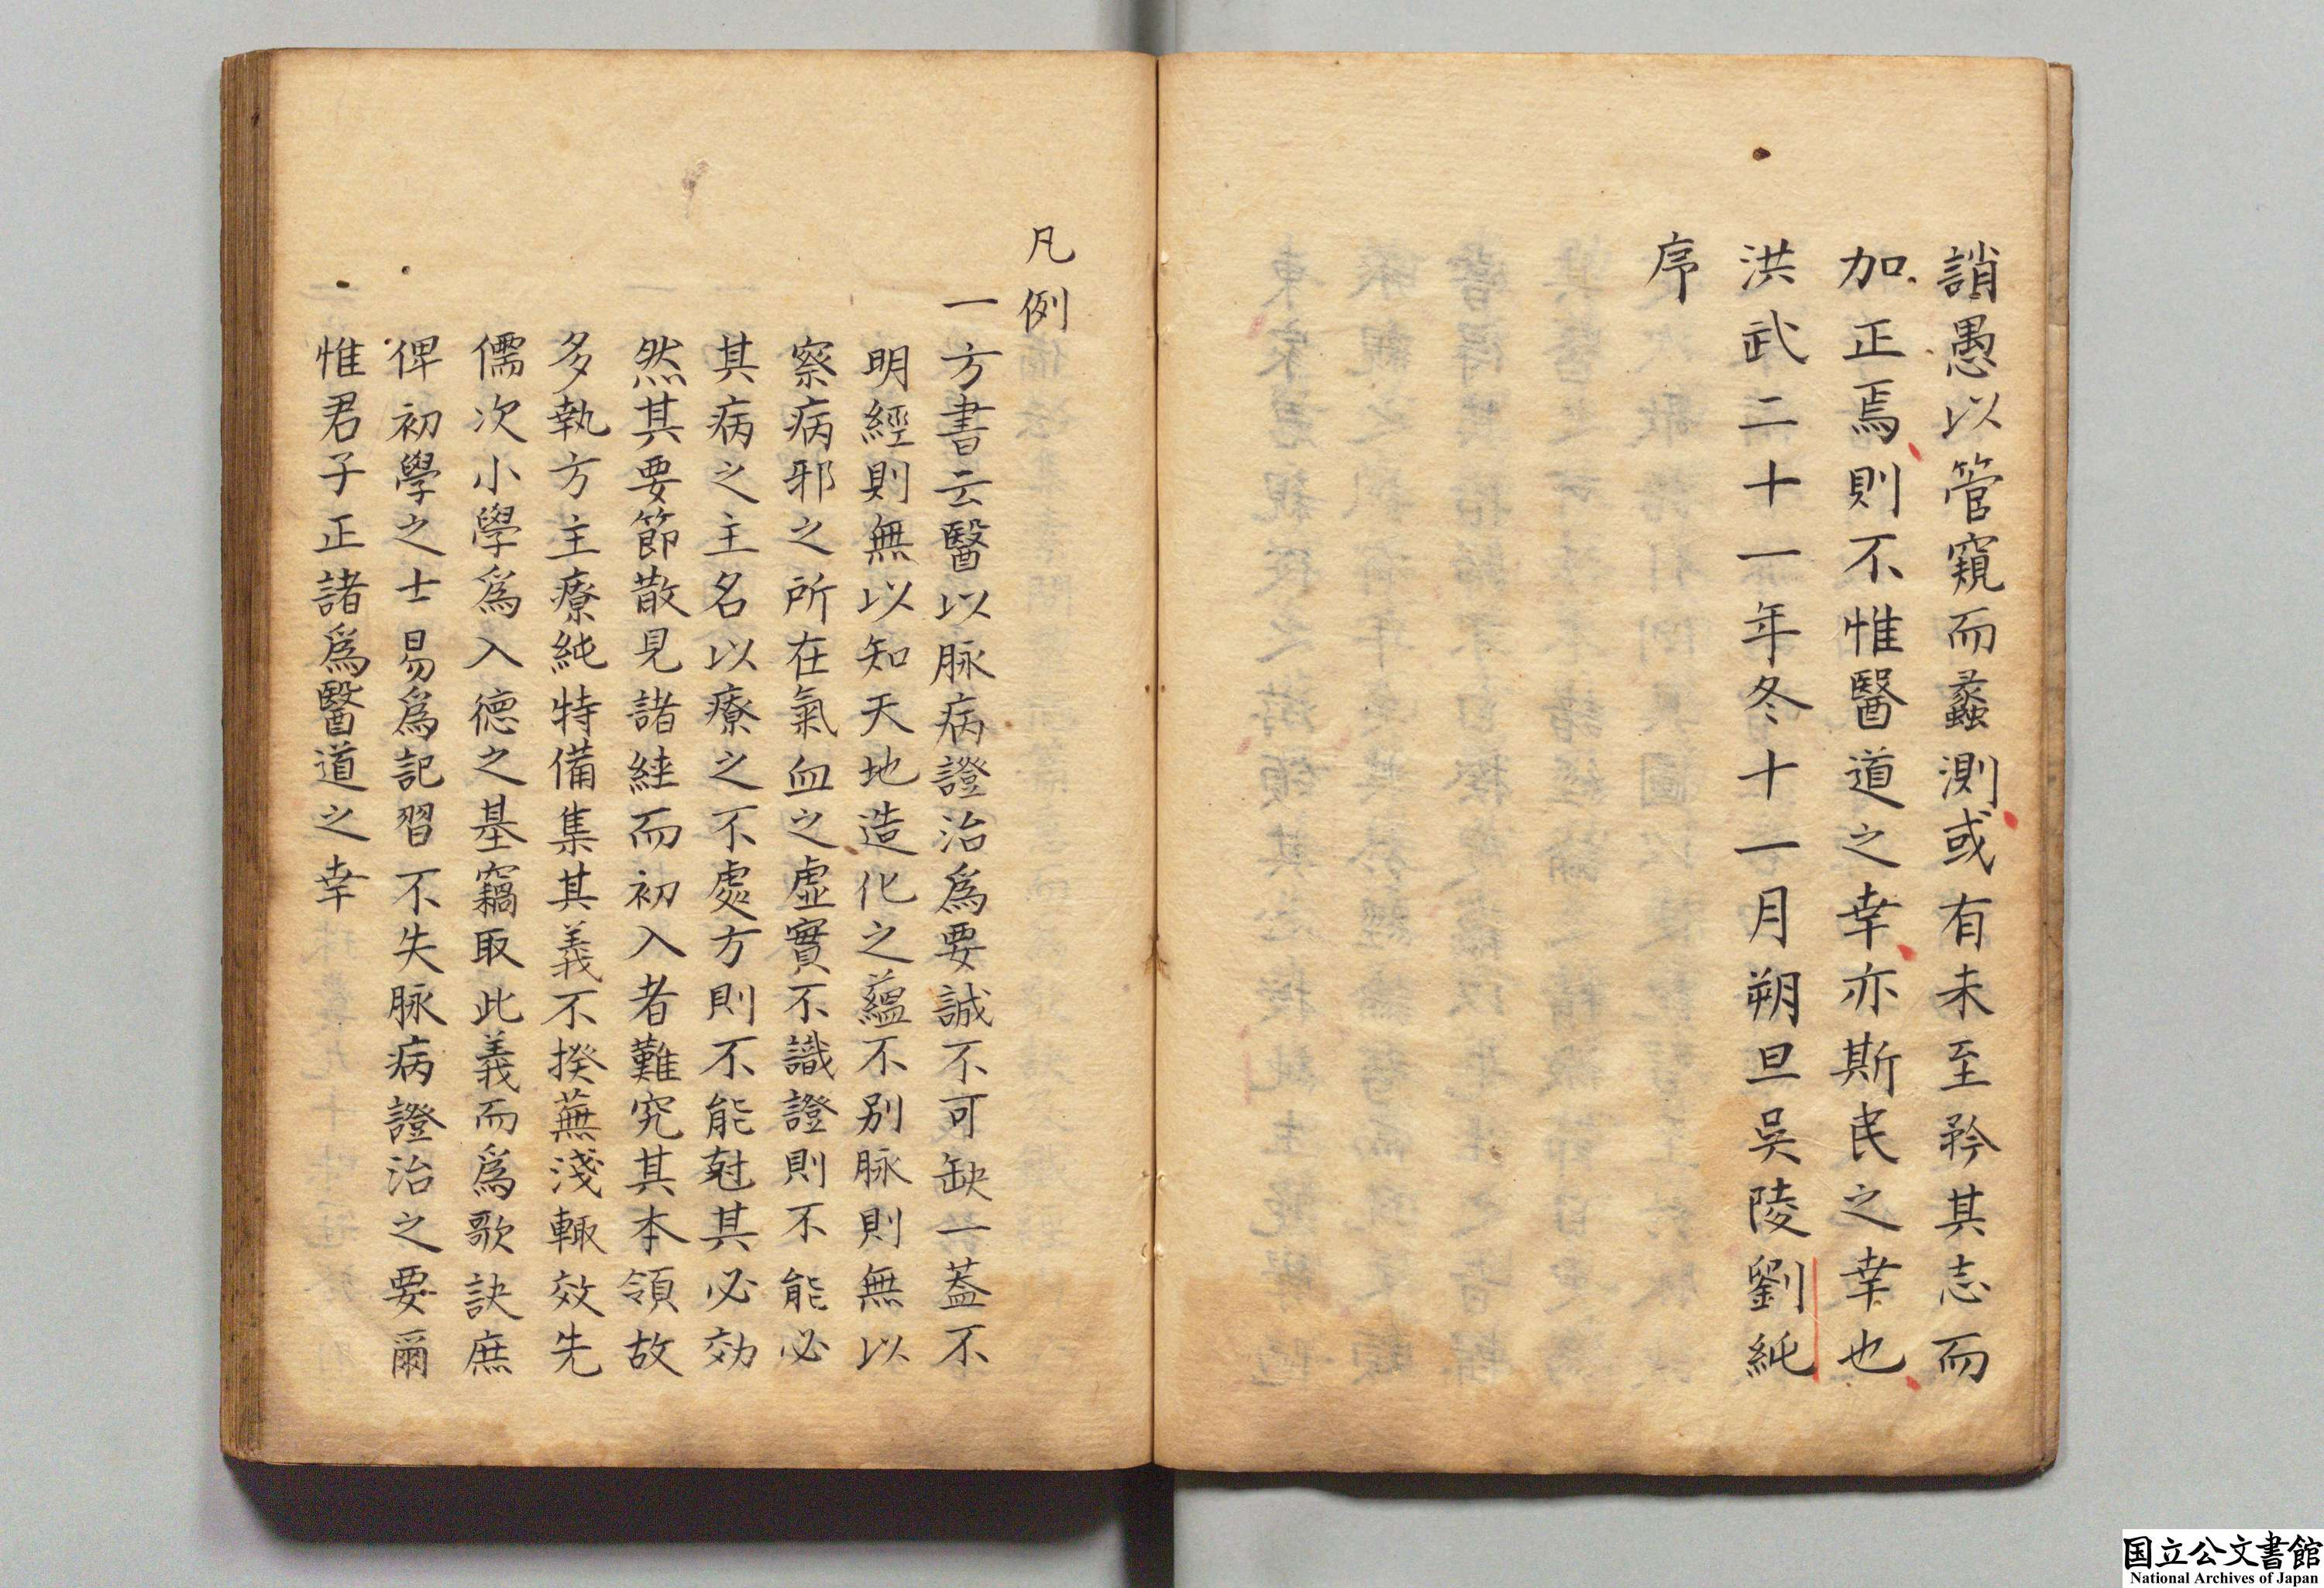 誚愚以管窺而蠡測或有未至矜其志而
加正焉則不惟醫道之幸亦斯民之幸也
洪武二十一年冬十一月朔旦吳陵劉純
序
凡例
一方書云醫以脉病證治爲要誠不可缺一葢不
明經則無以知天地造化之蘊不别脉則無以
察病邪之所在氣血之虛實不識證則不能必
其病之主名以療之不處方則不能尅其必効
然其要節散見諸経而初入者難究其本領故
多執方主療純特備集其義不揆蕪淺輙效先
儒次小學爲入德之基竊取此義而爲歌訣庶
俾初學之士易爲記習不失脉病證治之要爾
惟君子正諸爲醫道之幸
国立公文書館
National Archives of Japan